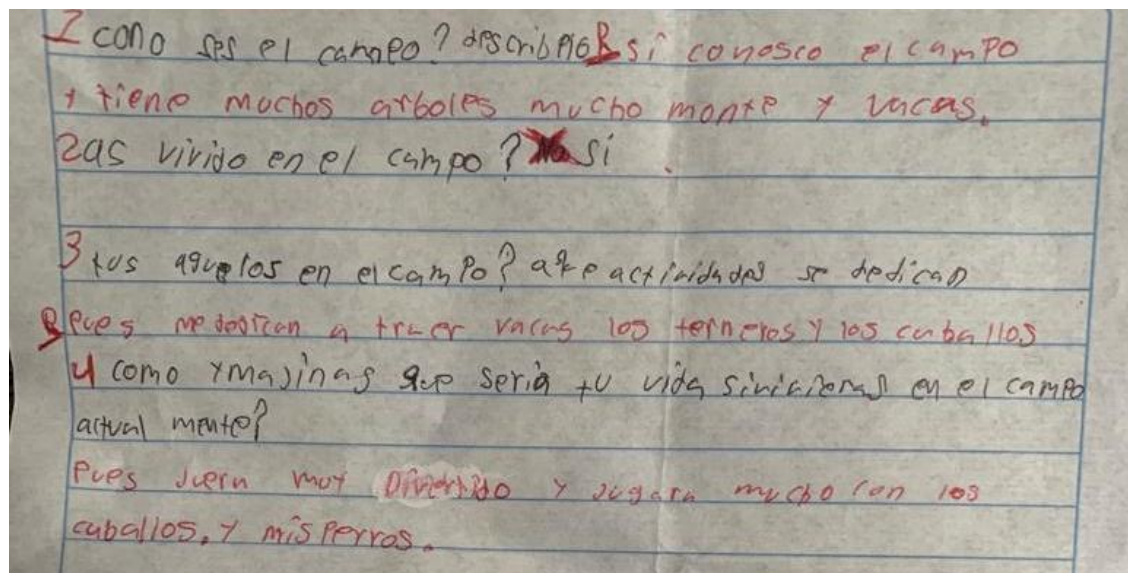 1 cono ses el campo? describelo R si conosco el campo
y tiene muchos arboles mucho monte y vacas.
2 as vivido en el campo? si
3 tus aguelos en el campo? a que actividades se dedican
R Pues me dedican a traer vacas los terneros y los caballos
4 como ymajinas que seria tu vida si vivieras en el campo
actual mente?
Pues juera muy Divertido y jugara mucho con los
caballos. y mis perros.